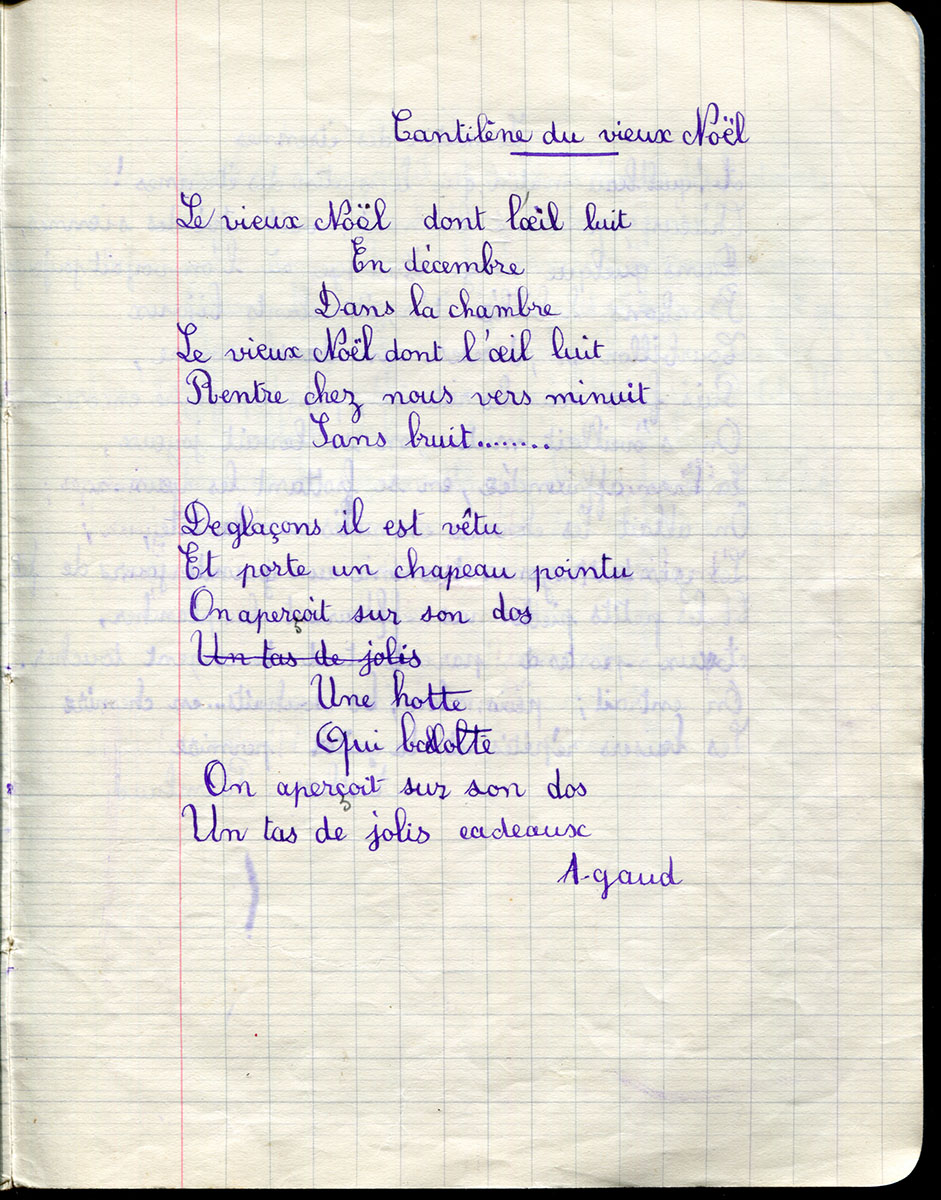 Cantilène du vieux Noël
Le vieux Noël dont l'œil luit
En décembre
Dans la chambre
Le vieux Noël dont l'œil luit
Rentre chez nous vers minuit
Sans bruit........
De glaçons il est vêtu
Et porte un chapeau pointu
On aperçoit sur son dos
Un tas de jolis
Une hotte
Qui ballotte
On aperçoit sur son dos
Un tas de jolis cadeaux
A-gaud